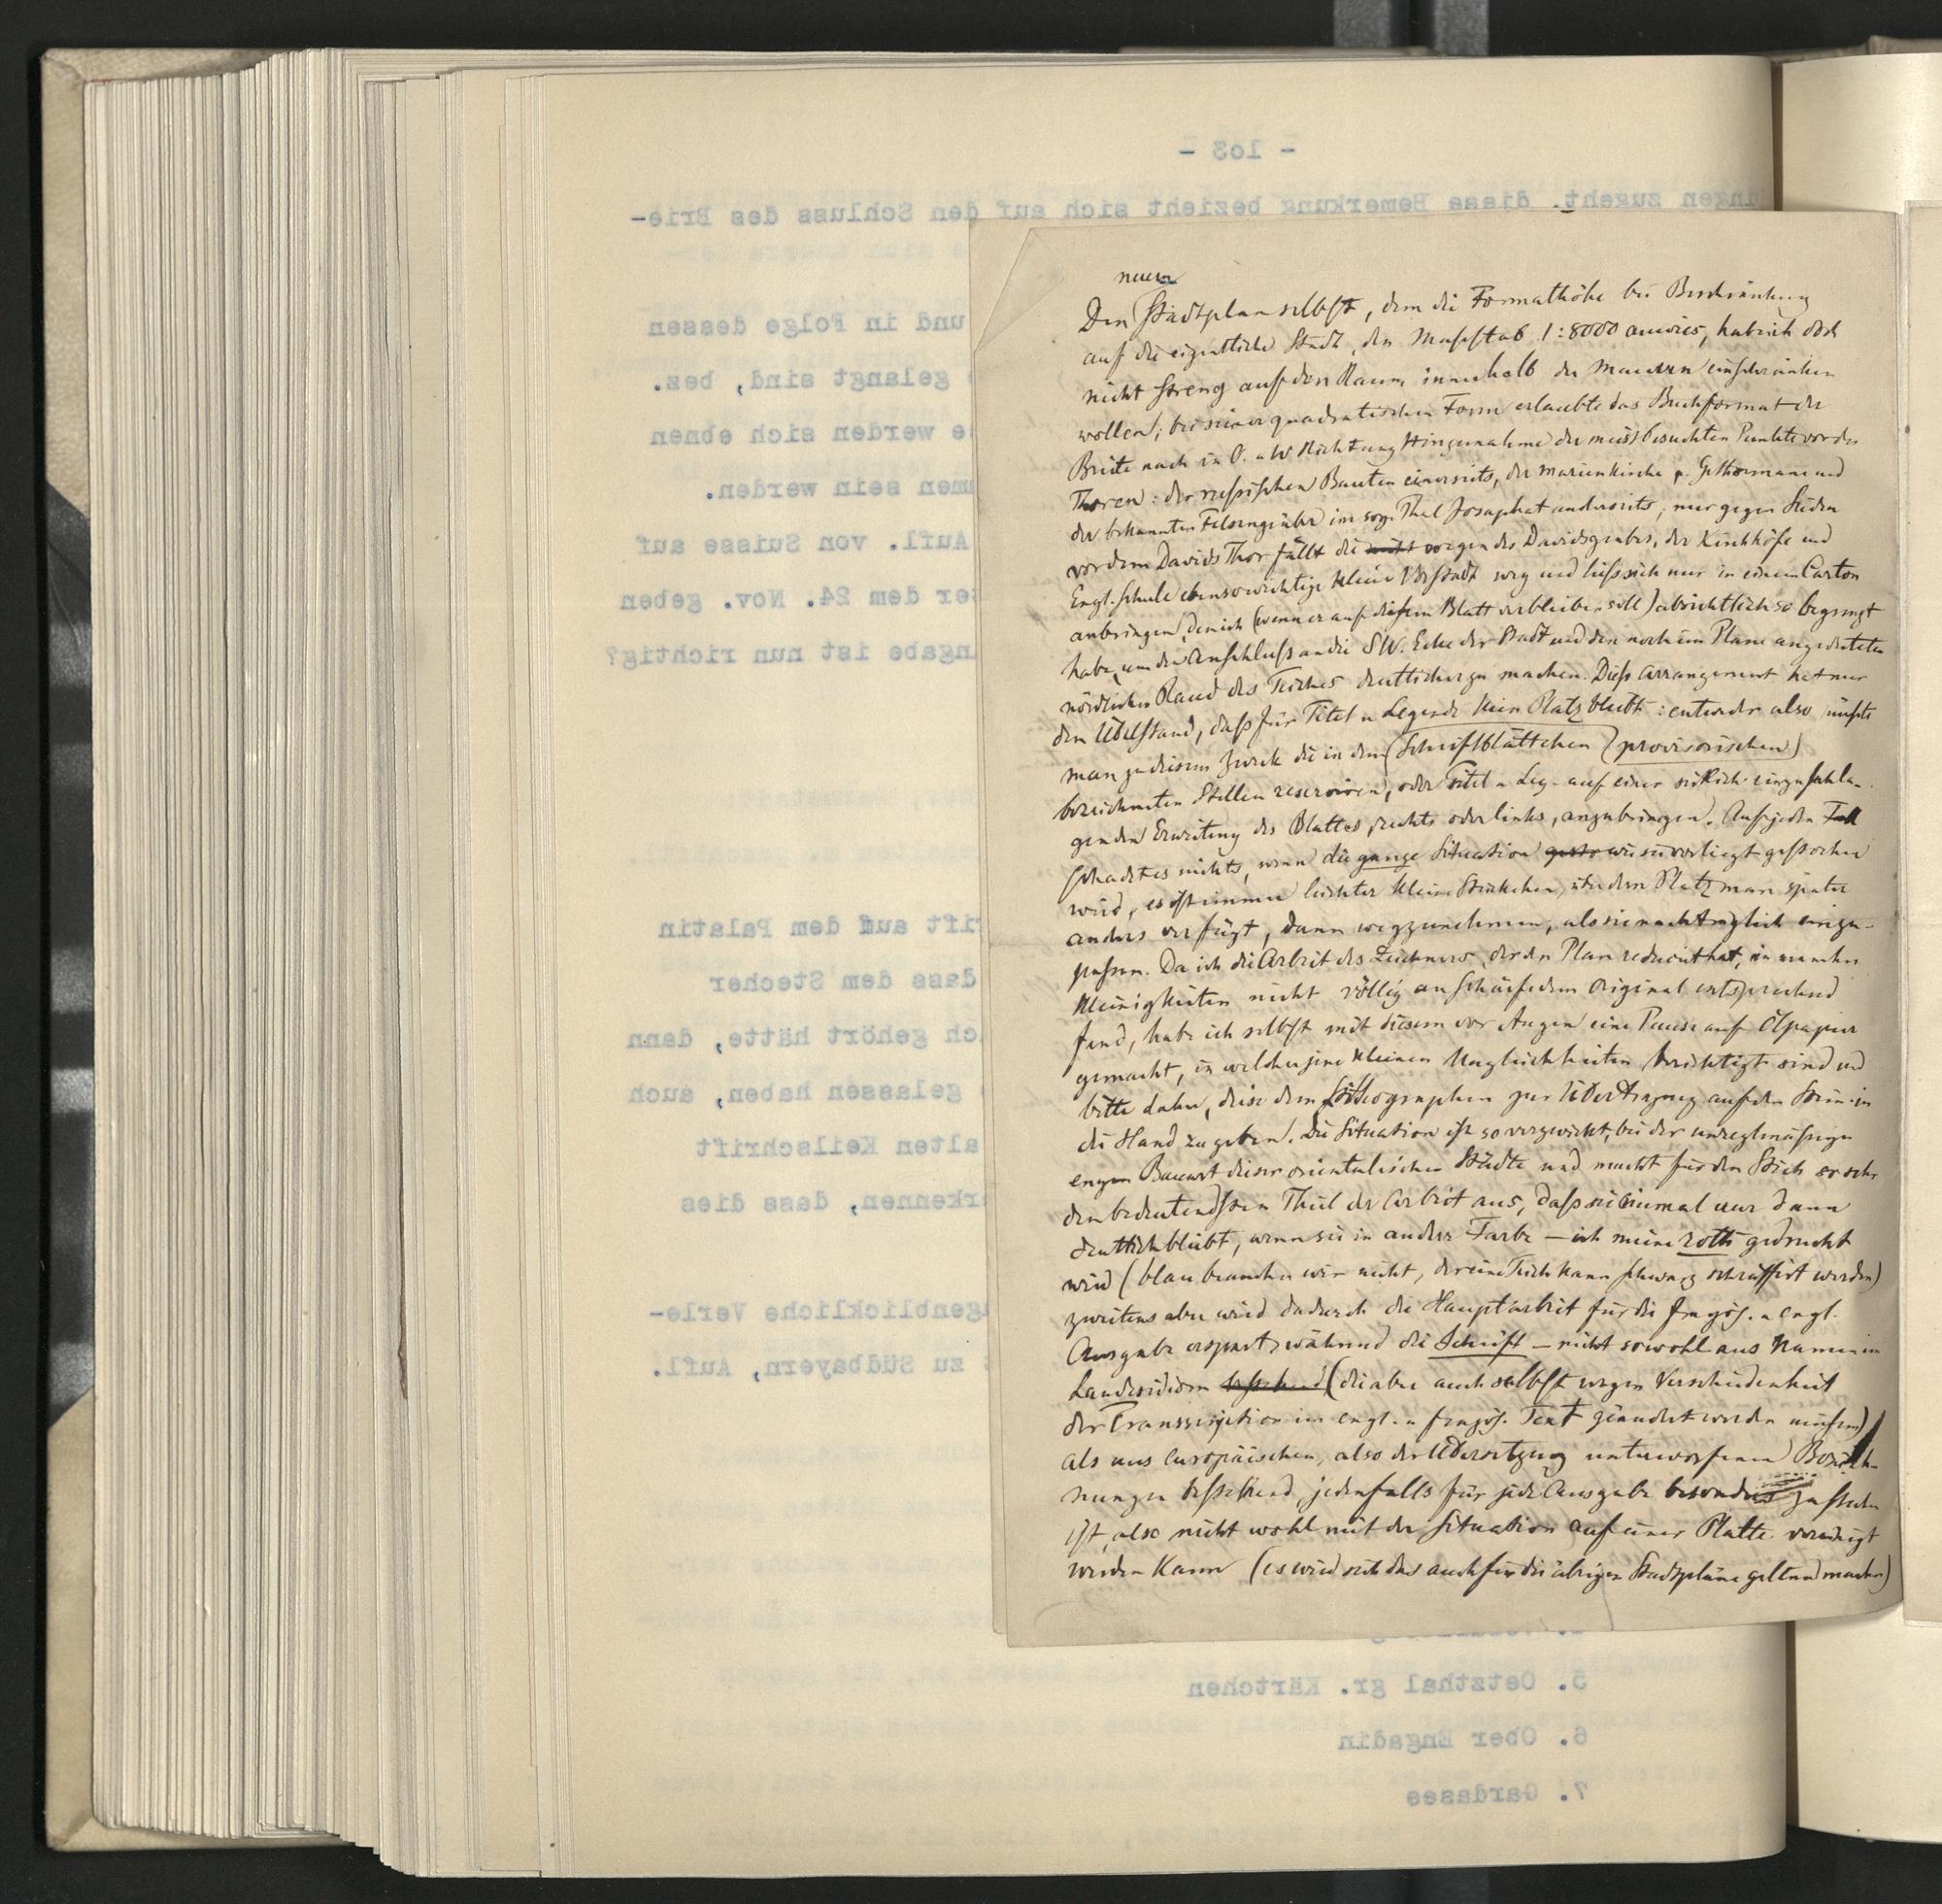 - 1o3 -
ngen zugeht. diese Bemerkung bezieht sich auf den Schluss des Brie-
und in Folge dessen
gelangt sind, bez.
e werden sich ebnen
men sein werden.
Aufl. von Suisse auf
ser dem 24. Nov. geben
ngabe ist nun richtig?
rift auf dem Palatin
dass dem Stecher
ch gehört hätte, dann
gelassen haben, auch
alten Keilschrift
rkennen, dass dies
genblickliche Verle-
zu Südbayern, Aufl.
5. Oetzthal gr. Kärtchen
6. Ober Engadin
7. Gardasee
neuen
Den Stadtplan selbst, dem die Formathöhe bei Beschränkung
auf die eigentliche Stadt, den Maßstab 1:8000 anwies, hab ich doch
nicht streng auf den Raum innerhalb der Mauern einschränken
wollen; bei seiner quadratischen Form erlaubte das Buchformat der
Breite nach in O. u W Richtung Hinzunahme der meist besuchten Punkte vor den
Thoren: der russischen Bauten einerseits, der Marienkirche u. Gethsemane und
der bekannten Felsengräber im sog. Thal Josaphat anderseits; nur gegen Süden
vor dem Davids Thor fällt die wegen des Davidsgrabes, der Kirchhöfe und
Engl. Schule ebenso wichtige kleine Vorstadt weg und ließ sich nur in einem Carton
anbringen, den ich (wenn er auf diesem Blatt verbleiben soll) absichtlich so begrenzt
habe, um den Anschluß an die SW. Ecke der Stadt und den noch im Plane angedeuteten
nördlichen Rand des Teiches deutlicher zu machen. Dieß Arrangement hat nur
den Übelstand, daß für Titel u Legende kein Platz bleibt: entweder also müßte
man zu diesem Zweck die in dem Schriftblättchen (provisorischen)
bezeichneten Stellen reserviren, oder Titel u Leg. auf einer seitlich einzuschla-
genden Erweiterung des Blattes, rechts oder links, anzubringen. Auf jeden Fall
schadet es nichts, wenn die ganze Situation wie sie vorliegt gestochen
wird, es ist immer leichter kleine Stückchen, über deren Platz man später
anders verfügt, dann wegzunehmen, als sie nachträglich einzu-
passen. Da ich die Arbeit des Zeichners, der den Plan reducirt hat, in manchen
Kleinigkeiten nicht völlig an Schärfe dem Original entsprechend
fand, habe ich selbst mit diesem vor Augen eine Pause auf Ölpapier
gemacht, in welcher jene kleinen Ungleichheiten berichtigt sind und
bitte daher, diese dem Lithographen zur Übertragung auf den Stein in
die Hand zu geben. Die Situation ist so verzwickt, bei der unregelmäßigen
engen Bauart dieser orientalischen Städte und macht für den Stich so sehr
den bedeutendsten Theil der Arbeit aus, daß sie einmal nur dann
deutlich bleibt, wenn sie in andrer Farbe – ich meine roth gedruckt
wird (blau brauchen wir nicht, der eine Teich kann schwarz schraffirt werden)
zweitens aber wird dadurch die Hauptarbeit für die französ. u engl.
Ausgabe erspart, während die Schrift – nicht sowohl aus Namen im
Landesidiom (die aber auch selbst wegen Verschiedenheit
der Transscription im engl. u französ. Text geändert werden müssen)
als aus europäischen, also der Übersetzung unterworfenen Bezeich-
nungen bestehend, jedenfalls für jede Ausgabe besonders zu stechen
ist, also nicht wohl mit der Situation auf einer Platte vereinigt
werden kann (es wird sich das auch für die übrigen Stadtpläne geltend machen)